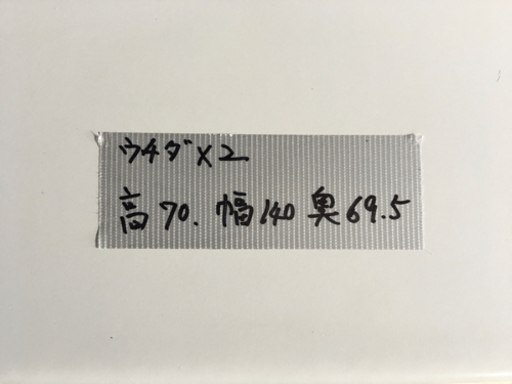 ウチダ×2
高70.幅140奥69.5